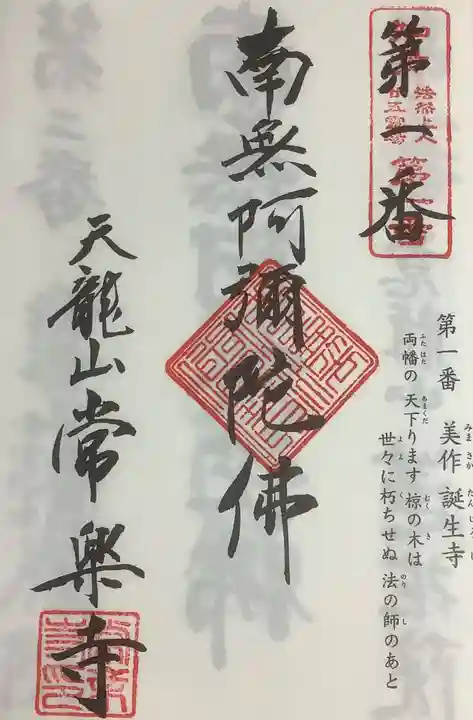 第一番
第一番 美作 誕生寺
両幡の 天下ります 椋の木は
世々に朽ちせぬ 法の師のあと
南無阿彌陀佛
天龍山常樂寺